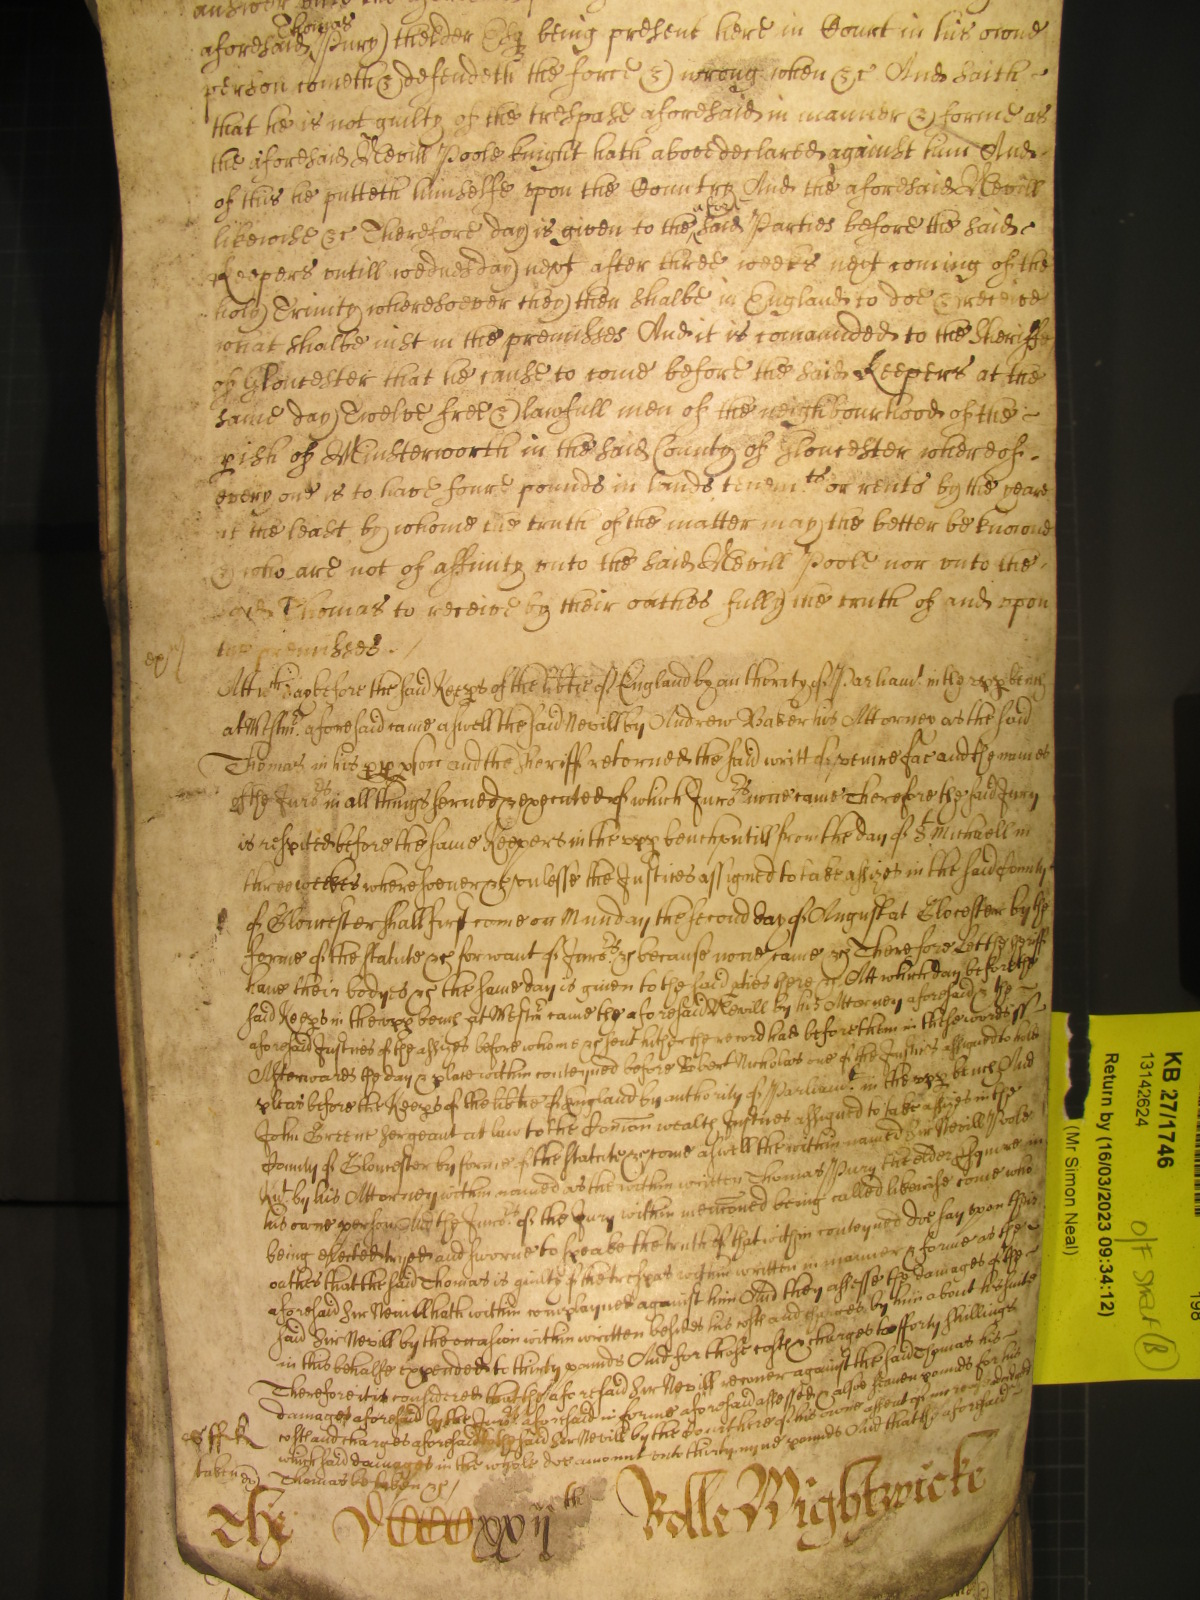 answer unto the
Thomas
aforesaid Pury thelder Esq being present here in Court in his owne
person cometh & defendeth the force & wrong when &c And saith
that he is not guilty of the trespasse aforesaid in manner & forme as
the aforesaid Nevill Poole knight hath above declared against him And
of this he putteth himselfe upon the Country And the aforesaid Nevill
afore
likewise &c Therefore day is given to the said Parties before the said
Keepers untill wednesday next after three weeks next coming of the
holy Trinity wheresoever they then shalbe in England to doe & receive
what shalbe iust in the premisses And it is comaunded to the Sheriffe
of Gloucester that he cause to come before the said Keepers at the
same day Twelve free & lawfull men of the neighbourhood of the
pish of Minsterworth in the said County of Gloucester whereof
every one is to have foure pounds in lands tenem.ts or rents by the yeare
at the least by whome the truth of the matter may the better be knowne
& who are not of affinity unto the said Nevill Poole nor unto the
said Thomas to receive by their oathes fully the truth of and upon
the premisses
Att wch day before the said Keeps of the libtie of England by authority of Parliamt in the upp bench
at Westmr aforesaid came aswell the said Nevill by Andrew Baker his Attorney as the said
Thomas in his pp pson and the Sheriff retorned the said writt of venire fac and the names
of the Juro.rs in all things served & executed of which Juro.rs none came Therefore the said Jury
is respited before the same Keepers in the upp bench untill from the day of St Michaell in
three weekes wheresoever &c unlesse the Justices assigned to take assizes in the said County
of Gloucester shall first come on Munday the second day of August at Glocester by the
forme of the statute &c for want of Juro.rs &c because none came &c Therefore let the sheriff
have their bodyes &c the same day is given to the said pties there &c Att which day before the
said Keeps in the upp bench at Westmr came the aforesaid Nevill by his Attorney aforesaid & the
aforesaid Justices of the assizes before whome &c sent hither the record had before them in these words ss
Afterwards the day & place within conteyned before Robert Nicholas one of the Justices assigned to hold
pleas before the Keeps of the libtie of England by authority of Parliamt in the upp bench And
John Greene Sergeant at law to the Comon wealth Justices assigned to take assizes in the
County of Gloucester by forme of the statute &c come aswell the within named Sir Nevill Poole
Knt by his Attorney within named as the within written Thomas Pury the elder Esquire in
his owne person And the Juro.rs of the Jury within mencioned being called likewise come who
being elected tryed and sworne to speake the truth of that within conteyned doe say upon their
oathes that the said Thomas is guilty of the trespas within written in manner & forme as the
aforesaid Sir Nevill hath within complayned against him And they assesse the damages of the
said Sir Nevill by the occasion within written besides his costs and charges by him about his suite
in this behalfe expended to thirty pounds And for those costs & charges to fforty shillings
Therefore it is considered that the aforesaid Sir Nevill recover against the said Thomas his
damages aforesaid by the Juro.rs aforesaid in forme aforesaid assessed & alsoe seaven pounds for his
costs and charges aforesaid to the said Sir Nevill by the Court here of his owne assent of increase adiudged
which said damages in the whole doe amount unto thirty nyne pounds And that the aforesaid
Thomas be taken &c
taken
The DCCCCxxvijth Rolle Wightwicke
KB 27/1746
13142624
Return by (16/03/2023 09:34:12)
(Mr Simon Neal)
O/F Strat (B)
198